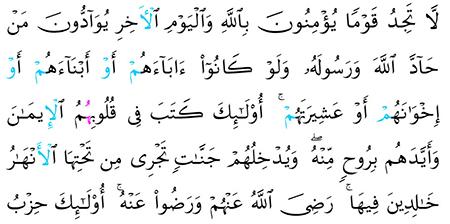 لَّا تَجِدُ قَوْمًا يُؤْمِنُونَ بِٱللَّهِ وَٱلْيَوْمِ ٱلْأَخِرِ يُوَآدُّونَ مَنْ
حَآدَّ ٱللَّهَ وَرَسُولَهُۥ وَلَوْ كَانُوٓا۟ ءَابَآءَهُمْ أَوْ أَبْنَآءَهُمْ أَوْ
إِخْوَٰنَهُمْ أَوْ عَشِيرَتَهُمْ ۚ أُو۟لَٰٓئِكَ كَتَبَ فِى قُلُوبِهِمُ ٱلْإِيمَٰنَ
وَأَيَّدَهُم بِرُوحٍ مِّنْهُ ۖ وَيُدْخِلُهُمْ جَنَّٰتٍ تَجْرِى مِن تَحْتِهَا ٱلْأَنْهَٰرُ
خَٰلِدِينَ فِيهَا ۚ رَضِىَ ٱللَّهُ عَنْهُمْ وَرَضُوا۟ عَنْهُ ۚ أُو۟لَٰٓئِكَ حِزْبُ